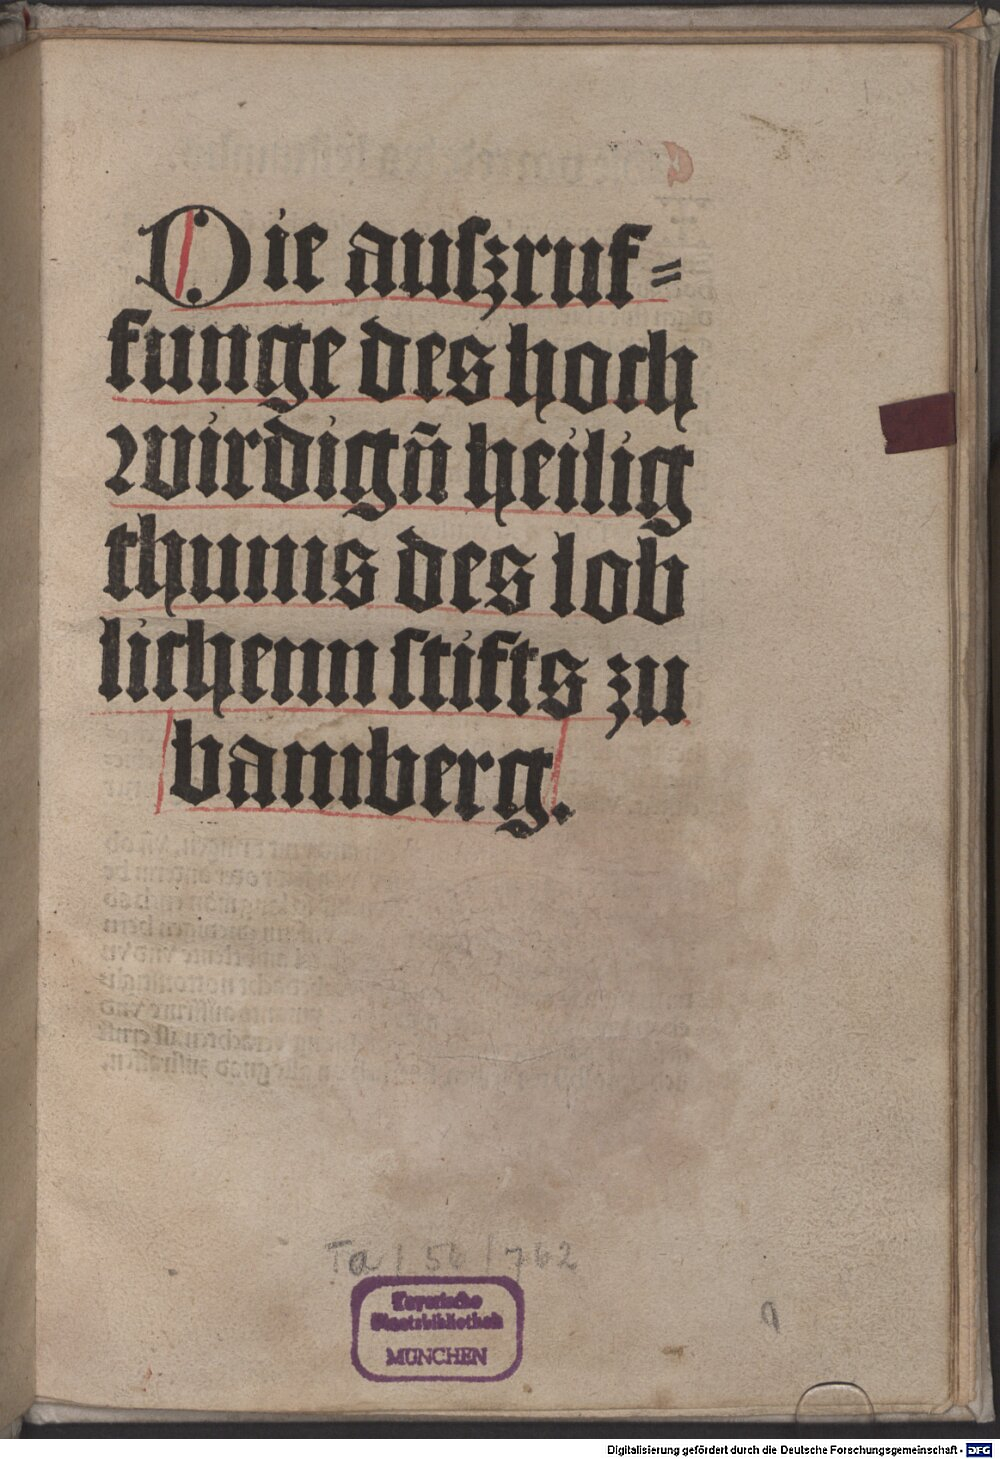 Die auſzruf⸗
funge des hoch
wirdigñ heilig
thums des lob
lichenn ſtifts zu
bamberg.
Ta / 56 / 762
Bayerische
Staatsbibliothek
MÜNCHEN
Digitalisierung gefördert durch die Deutsche Forschungsgemeinschaft - DFG